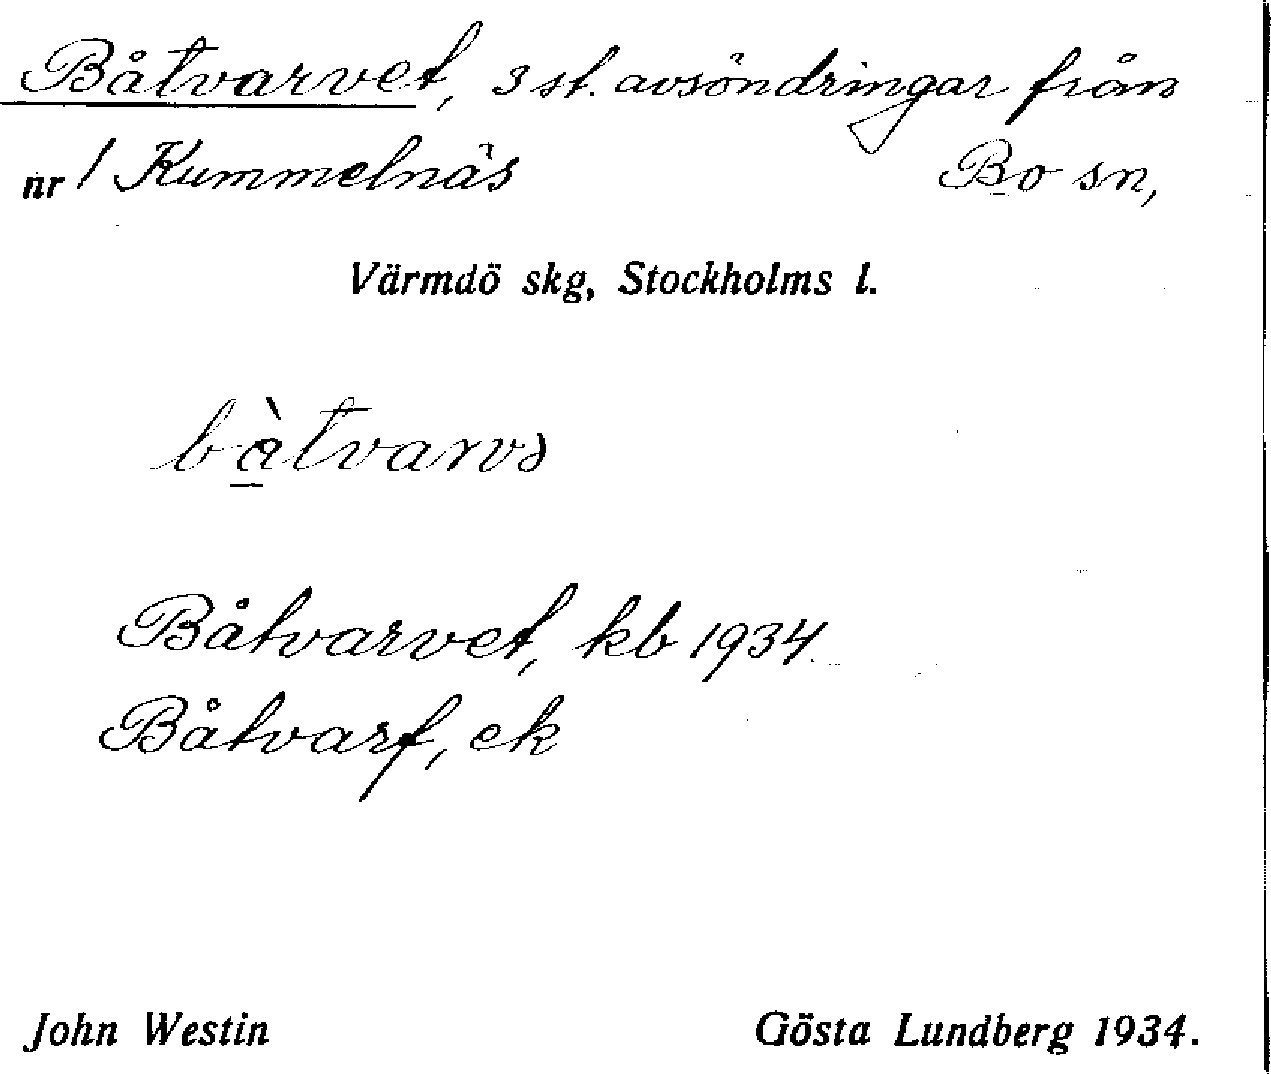 Båtvarvet, 3 st. avsöndringar från
nr 1 Kummelnäs Bo sn,
Värmdö skg, Stockholms l.
bàtvarvə
Båtvarvet, kb 1934
Båtvarf, ek
John Westin Gösta Lundberg 1934.